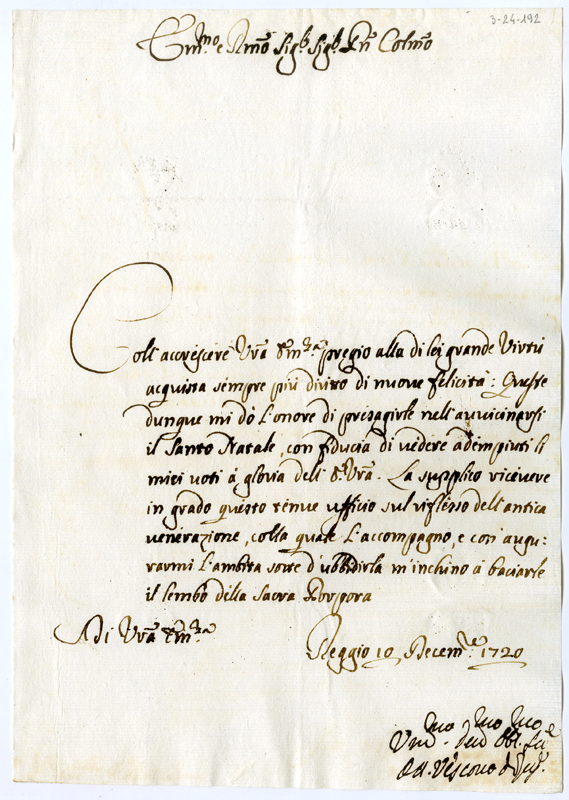 3-24-192
Em.mo e Rmo Sig.r Sig.r Pñ Colmo
Coll'accrescere Vrã Em.za pregio alla di lei grande Virtù
acquista sempre più diritto di nuove felicità: Queste
dunque mi dò l'onore di presagirle nell'avvicinarsi
il Santo Natale, con fiducia di vedere adempiuti li
miei voti à gloria dell'E. Vrã. La supplico ricevere
in grado questo tenue ufficio sul riflesso dell'antica
venerazione, colla quale l'accompagno, e con augu:
rarmi l'ambita sorte d'ubbidirla m'inchino à baciarle
il lembo della Sacra Porpora
Di Vrã Em.za
Reggio 10 Decem.re 1720
Vmo Dmo Obl.mo
Vescovo di